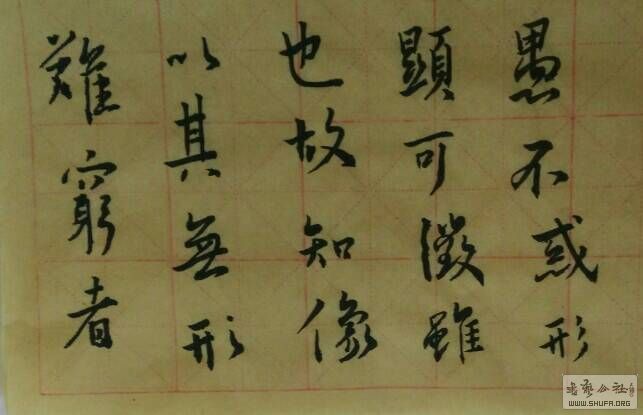 難窮者
以其無形
也故知像
顯可徵雖
愚不惑形
WWW.SHUFA.ORG